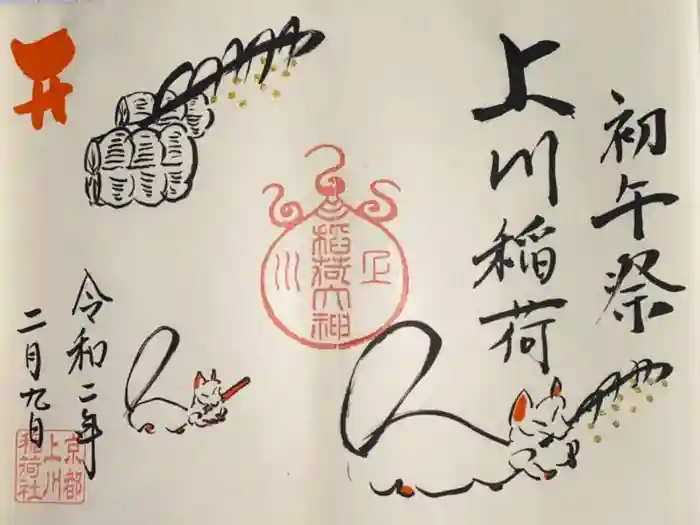 初午祭
上川稲荷
上川
稲荷大神
令和二年
二月九日
京都
上川
稲荷社